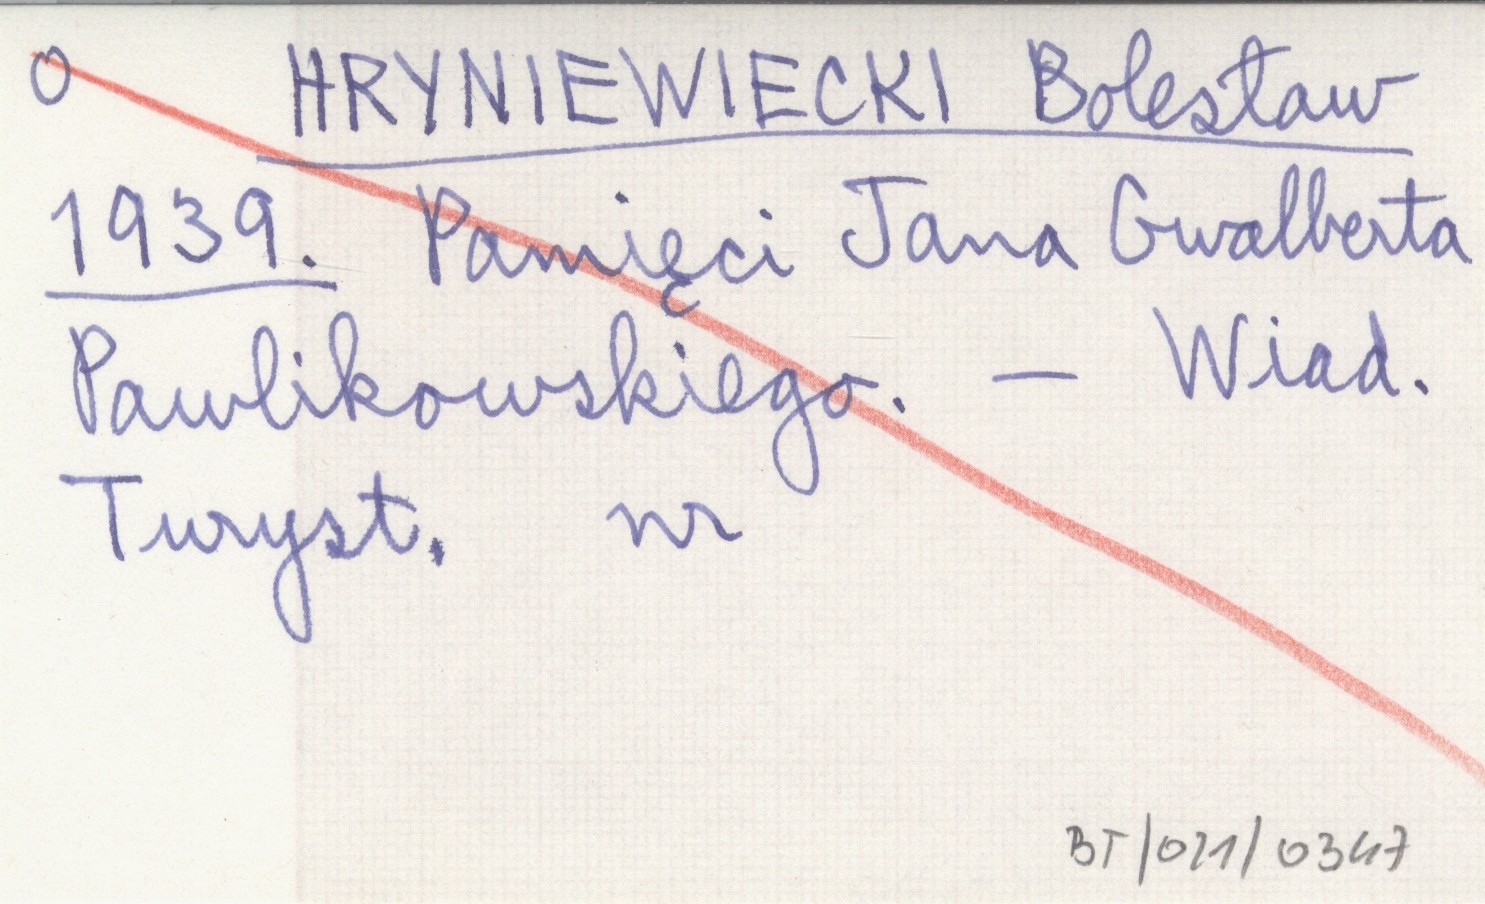 O HRYNIEWIECKI Bolesław
1939. Pamięci Jana Gwalberta
Pawlikowskiego. — Wiad.
Turyst. nr
BT/021/0347